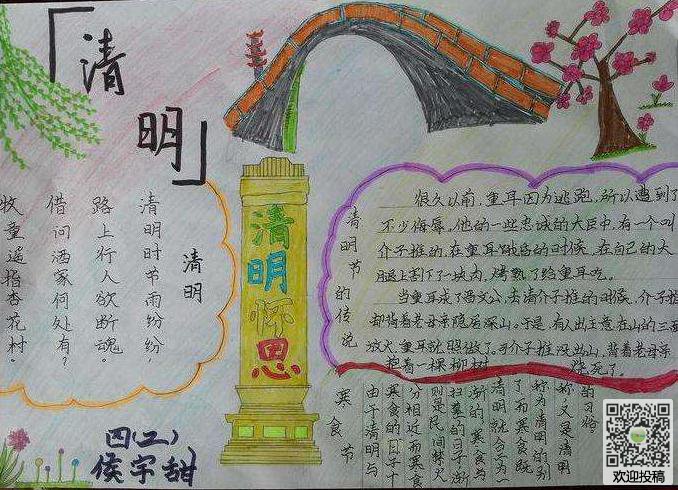 「清明」
清明
清明时节雨纷纷，
路上行人欲断魂。
借问酒家何处有？
牧童遥指杏花村。
清明怀恩
清明节的传说
很久以前，重耳因为逃跑，所以遭到了
不少侮辱，他的一些忠诚的大臣中，有一个叫
介子推的，在重耳饿昏的时候，在自己的大
腿上割下了一块肉，烤熟了给重耳吃。
当重耳成了晋文公，去请介子推的时候，介子推
却背着老母亲隐居深山。于是，有人出主意在山的三面
放火，重耳就照做了。介子推没出山，背着老母亲
抱着一棵柳树 烧死了。
寒食节
由于清明与
寒食的日子十
分相近而寒食
则是民间禁火
扫墓的日子，渐
渐的，寒食与
清明就合二为一
了，而寒食既
称为清明的别
称，又是清明
的习俗。
四(二)
侯宇甜
欢迎投稿